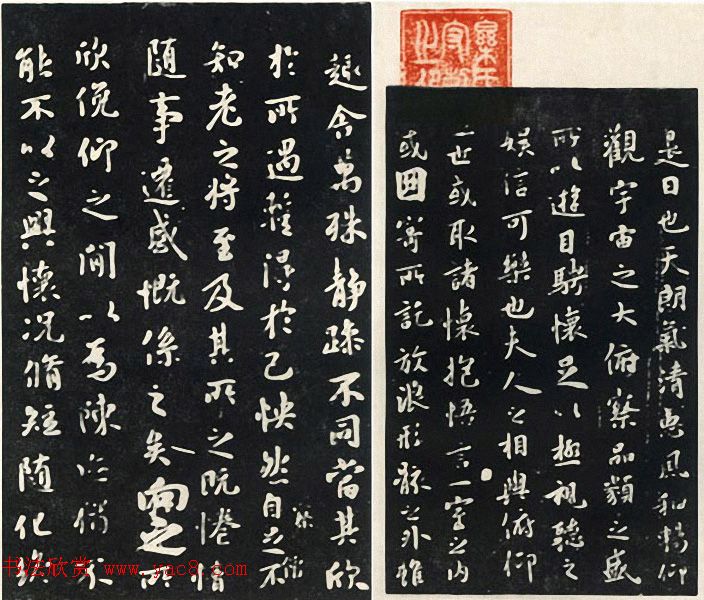 是日也天朗氣清惠風和暢仰
觀宇宙之大俯察品類之盛
所以遊目騁懷足以極視聽之
娛信可樂也夫人之相與俯仰
一世或取諸懷抱悟言一室之內
或因寄所託放浪形骸之外雖
趣舍萬殊靜躁不同當其欣
於所遇暫得於己怏然自足不
知老之將至及其所之既惓情
隨事遷感慨係之矣向之所
欣俛仰之閒以為陳迹猶不
能不以之興懷況脩短隨化終
书法欣赏 www.yac8.com